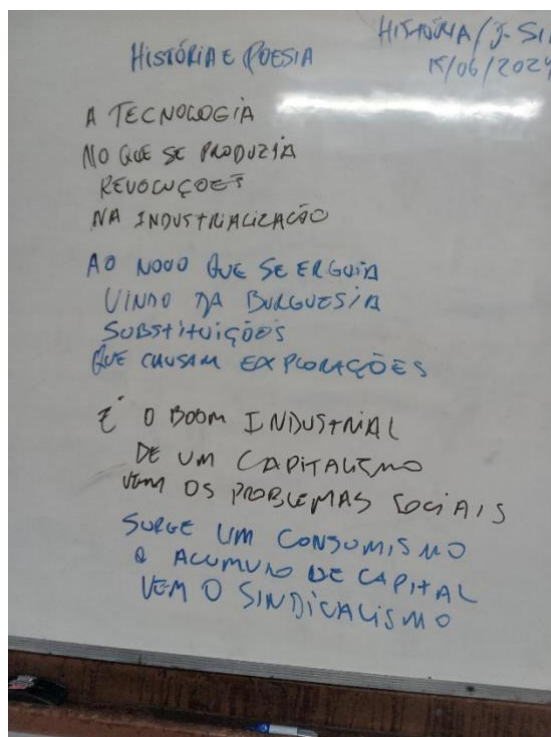 HISTÓRIA E POESIA
HISTÓRIA/J. SI
15/06/2024
A TECNOLOGIA
NO QUE SE PRODUZIA
REVOLUÇÕES
NA INDUSTRIALIZAÇÃO
AO NOVO QUE SE ERGUIA
VINDO DA BURGUESIA
SUBSTITUIÇÕES
QUE CAUSAM EXPLORAÇÕES
É O BOOM INDUSTRIAL
DE UM CAPITALISMO
VEM OS PROBLEMAS SOCIAIS
SURGE UM CONSUMISMO
O ACUMULO DE CAPITAL
VEM O SINDICALISMO